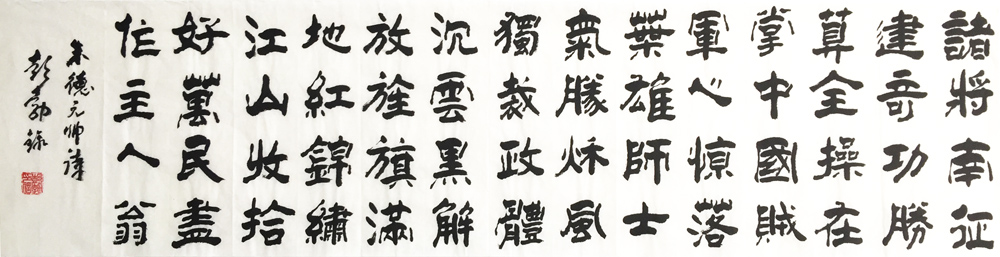 諸將南征
建奇功勝
算全操在
掌中國賊
軍心惊落
葉雄師士
氣勝秌風
獨裁政體
沉雲黑解
放旌旗滿
地紅錦繡
江山收拾
好萬民盡
作主人翁
朱德元帅詩
彭 錄